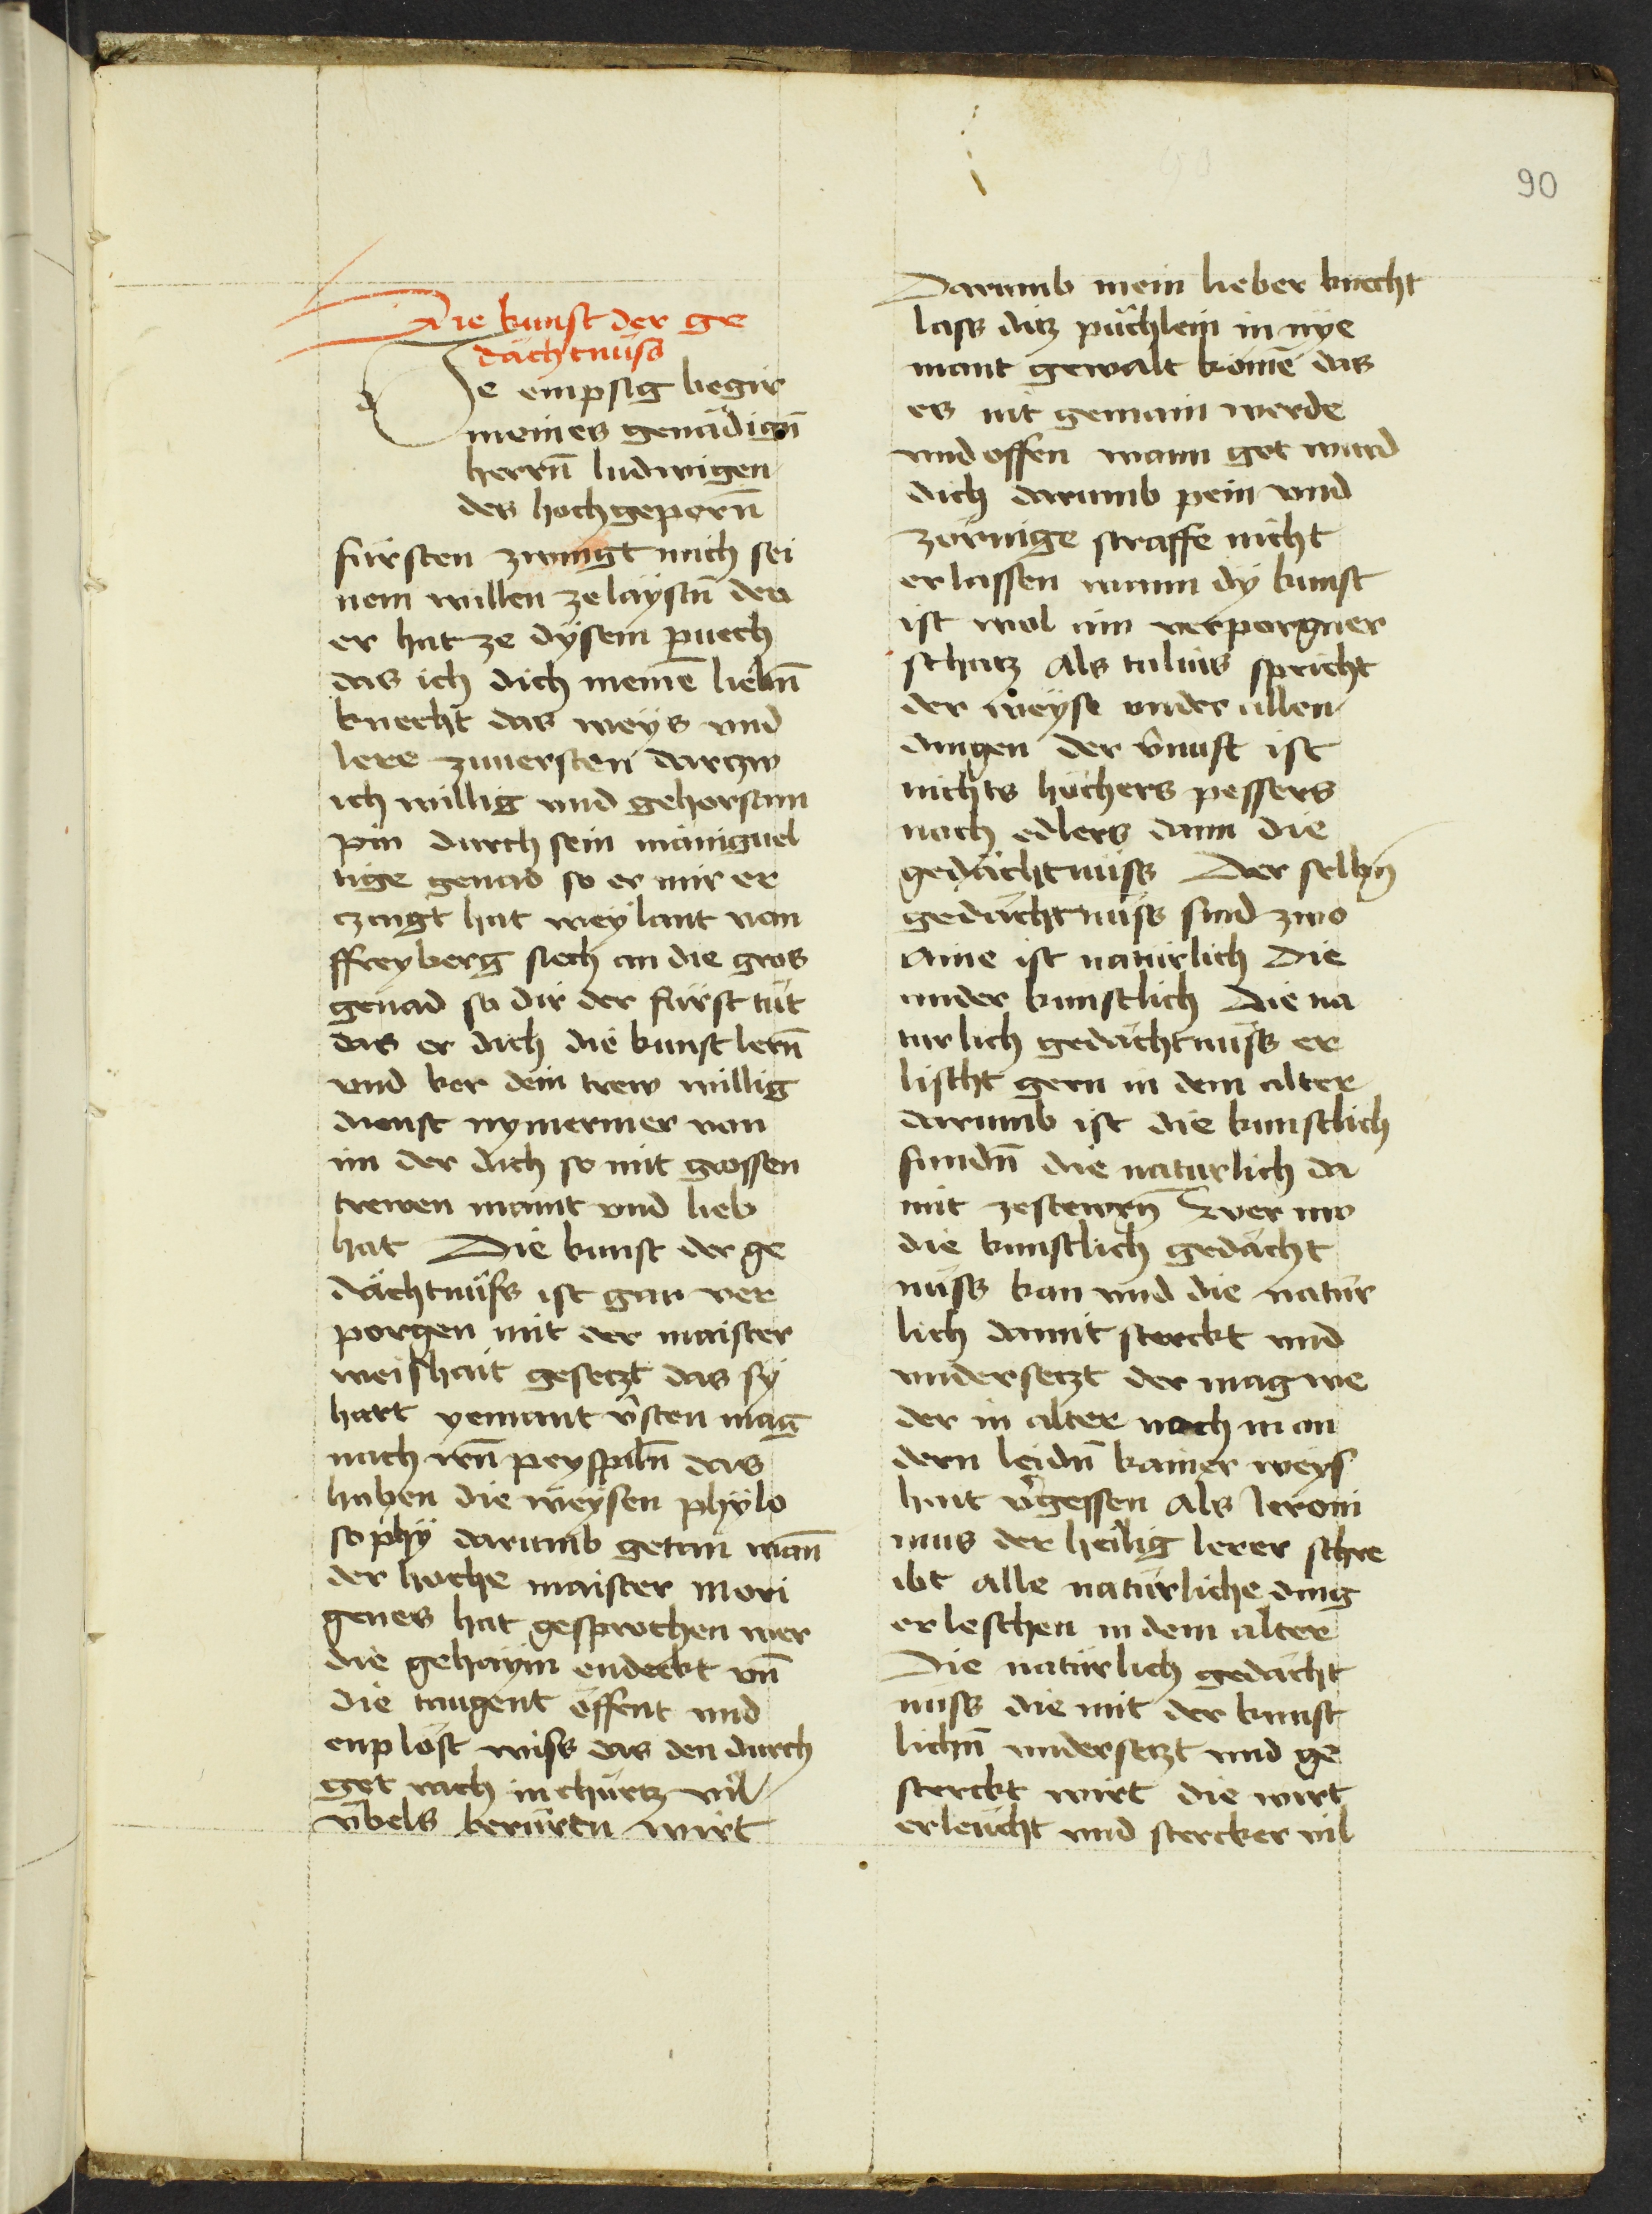 90
Die kunst der ge
dächtnüss
Je empsig begir
meines genädigñ
herrñ ludwigen
des hochgeporñ
fürsten zwingt mich sei
nem willen ze laystñ den
er hat ze dysem puech
das ich dich meinē liebñ
knecht das weys vnd
lere zuuersten darczw
ich willig vnd gehorsam
pin durch sein mäniguel
tige genad so er mir er
czaigt hat weylant von
ffreyberg siech an die gros
genad so dir der fürst tüt
das er dich die kunst lerñ
vnd ker dein trew willig
dienst nymermer von
im der dich so mit grossen
trewen maint vnd lieb
hat Die kunst der ge
dächtnüss ist gar ver
porgen mit der maister
weishait gesetzt das sy
hart yemant v̄sten mag
nach irñ peyspilñ das
haben die weysen phylo
sophy darumb getan wañ
der hoche maister Mori
genes hat gesprochen wer
die gehaym endeckt vñ
die taugent öffent vnd
enplöst wiss das den durch
got rach in churtz vil
v̈bels berürtn wirt
Darumb mein lieber knecht
lass ditz püchlein in nye
mant gewalt komē das
es nit gemain werde
vnd offen wann got wurd
dich darumb pein vnd
zörnige straffe nicht
erlassen wann dy kunst
ist wol ain verporgner
schatz Als tulius spricht
der weyse vnder allen
dingen der v̄nuft ist
nichts höchers pessers
noch edlers dann die
gedächtnüss Der selbñ
gedächtnüss sind zwo
Aine ist natürlich Die
ander kunstlich Die na
turlich gedächtnüss er
lischt gern in dem alter
darumb ist die kunstlich
fundñ die naturlich da
mit zestewrñ Wer nw
die kunstlich gedächt
nüss kan vnd die natür
lich damit sterckt vnd
vndersetzt der mag we
der in alter noch in an
dern leidñ kainer weys
hait v̄gessen Als Ieroni
mus der heilig lerer schre
ibt Alle natürliche ding
erleschen in dem alter
Die natürlich gedächt
nüss die mit der kunst
lichñ vndersetzt vnd ge
sterckt wirt die wirt
erleücht vnd stercker vil